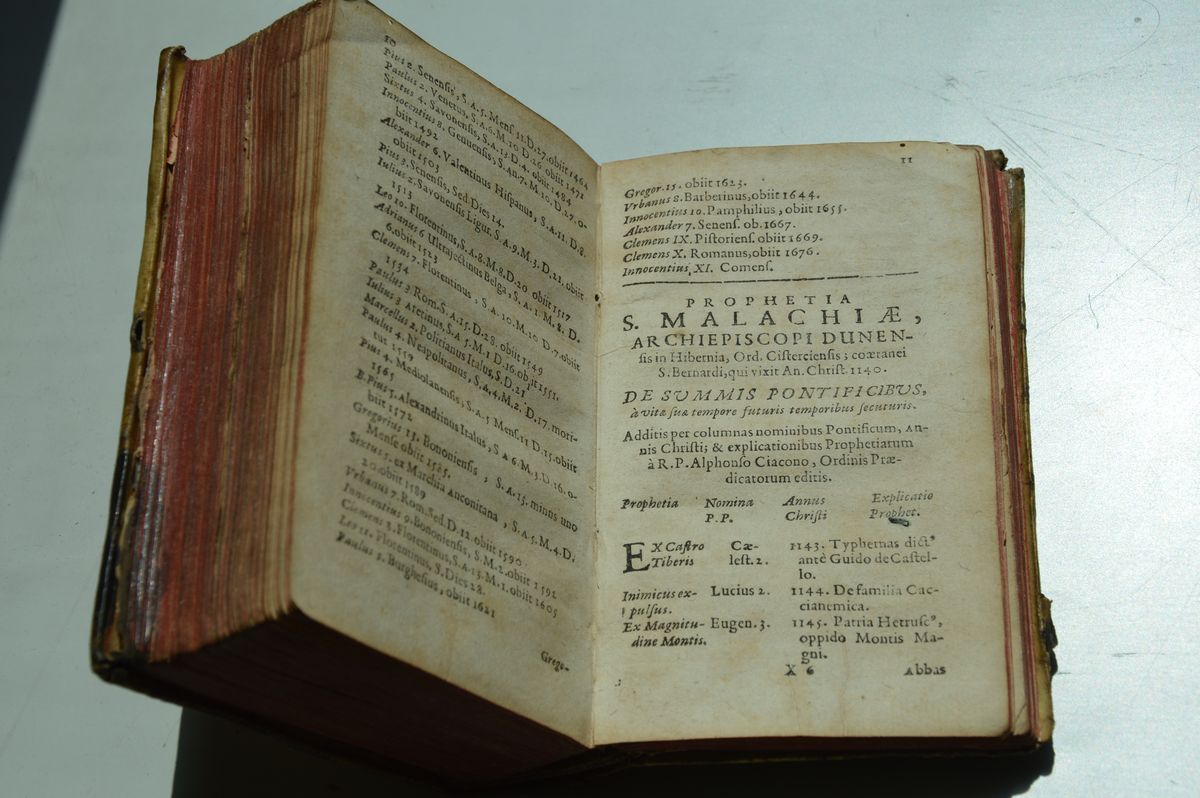 10
Pius 2. Senensis, S.A. 5. Mens. 11. D. 27. obiit 1464
Paulus 2. Venetus, S.A. 6. M. 10 D. 26. obiit 1471
Sixtus 4. Savonensis, S.A. 13. D. 4. obiit 1484
Innocentius 8. Genuensis, S. An. 7. M. 10. D. 27. o-
biit 1492
Alexander 6. Valentinus Hispanus, S.A. 11. D. 8.
obiit 1503
Pius 3. Senensis, Sed. Dies 14.
Iulius 2. Savonensis Ligur, S.A. 9. M. 3. D. 21. obiit
1513
Leo 10. Florentinus, S.A. 8. M. 8. D. 20 obiit 1517
Adrianus 6 Ultrajectinus Belga, S.A. 1. M. 8. D.
6. obiit 1523
Clemens 7. Florentinus, S. A. 10. M. 10 D. 7. obiit
1534
Paulus 3 Rom. S.A. 15. D. 28. obiit 1549
Iulius 3 Aretinus, S.A. 5. M. 1 D. 16. obiit 1551.
Marcellus 2. Politianus Italus, S. D. 21
Paulus 4. Neapolitanus, S.A. 4. M. 2. D. 17. mori-
tur 1559
Pius 4. Mediolanensis, S.A. 5 Mens. 11 D. 15. obiit
1565
B. Pius 5. Alexandrinus Italus, S.A. 6. M. 3. D. 16. o-
biit 1572
Gregorius 13. Bononiensis, S.A. 13. minus uno
Mense obiit 1585.
Sixtus 5. ex Marchia Anconitana, S.A. 5. M. 4. D.
20. obiit 1589
Urbanus 7. Rom. Sed. D. 12. obiit 1590.
Innocentius 9. Bononiensis, S. M. 2. obiit 1592
Clemens 8. Florentinus, S.A. 13. M. 1. obiit 1605
Leo 11. Florentinus, S. Dies 28.
Paulus 5. Burghesius, obiit 1621
Grego-
11
Gregor. 15. obiit 1623.
Vrbanus 8. Barberinus, obiit 1644.
Innocentius 10. Pamphilius, obiit 1655.
Alexander 7. Senens. ob. 1667.
Clemens IX. Pistoriens. obiit 1669.
Clemens X. Romanus, obiit 1676.
Innocentius XI. Comens.
PROPHETIA
S. MALACHIÆ,
ARCHIEPISCOPI DUNEN-
sis in Hibernia, Ord. Cisterciensis; coætanei
S. Bernardi, qui vixit An. Christ. 1140.
DE SVMMIS PONTIFICIBVS,
à vitæ suæ tempore futuris temporibus secuturis.
Additis per columnas nominibus Pontificum, An-
nis Christi; & explicationibus Prophetiarum
à R.P. Alphonso Ciacono, Ordinis Præ-
dicatorum editis.
Prophetia Nomina Annus Explicatio
P.P. Christi Prophet.
EX Castro Cæ- 1143. Typhernas dictꝰ
Tiberis lest. 2. antè Guido de Castel-
lo.
Inimicus ex- Lucius 2. 1144. De familia Cac-
pulsus. cianemica.
Ex Magnitu- Eugen. 3. 1145. Patria Hetruscꝰ,
dine Montis. oppido Montis Ma-
gni.
X 6 Abbas